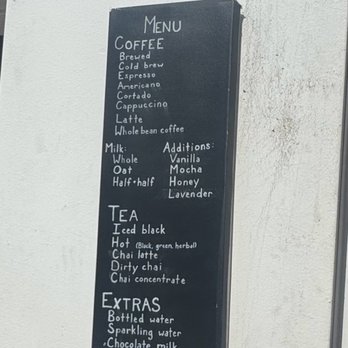 MENU
COFFEE
Brewed
Cold brew
Espresso
Americano
Cortado
Cappuccino
Latte
Whole bean coffee
Milk: Additions:
Whole Vanilla
Oat Mocha
Half+half Honey
Lavender
TEA
Iced black
Hot (Black, green, herbal)
Chai latte
Dirty chai
Chai concentrate
EXTRAS
Bottled water
Sparkling water
Chocolate milk